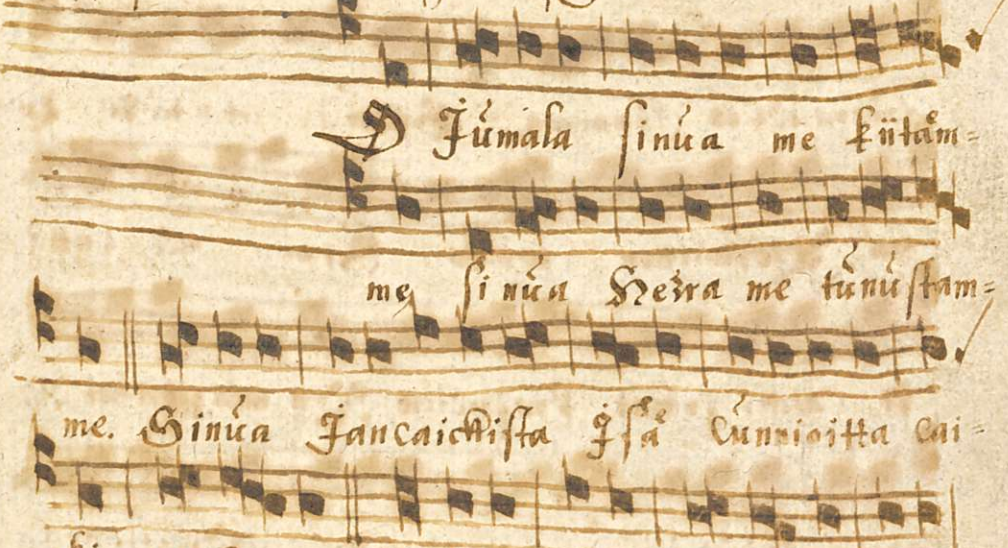 O Jűmala sinűa me kiitåm=
me sinűa Herra me tűnűstam=
me. Sinűa Jancaickista Jså cűnnioitta cai=